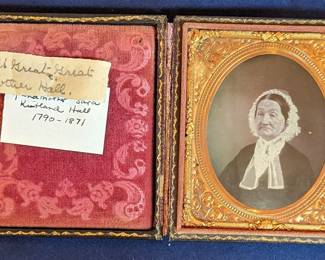 Great-Great
Hall.
Grandmother Sara
Kirtland Hall
1790-1871